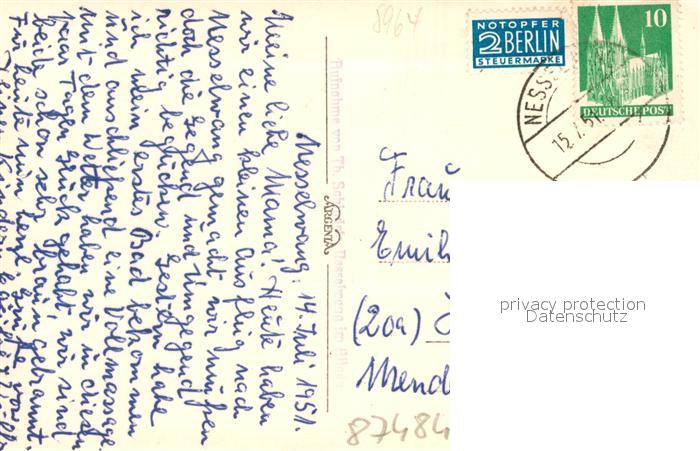 Nesselwang, 14. Juli 1951.
Meine liebe Mama! Heute haben
wir einen kleinen Ausflug nach
Nesselwang gemacht, wir müssen
doch die Gegend und Umgegend
richtig beglücken. Gestern habe
ich mein erstes Bad bekommen
und anschließend eine Vollmassage.
Mit dem Wetter haben wir in diesen
paar Tagen Glück gehabt, wir sind
beide schon sehr braun gebrannt.
Für heute nun herzl. Grüße von
Deinen Kindern
8964
Aufnahme von Th. Nesselwang im Allgäu
ARGENTA
NOTOPFER
2 BERLIN
STEUERMARKE
10
DEUTSCHE POST
NESSE
15.7.51
Frau
Emil
(20a)
Mend
87484
privacy protection
Datenschutz